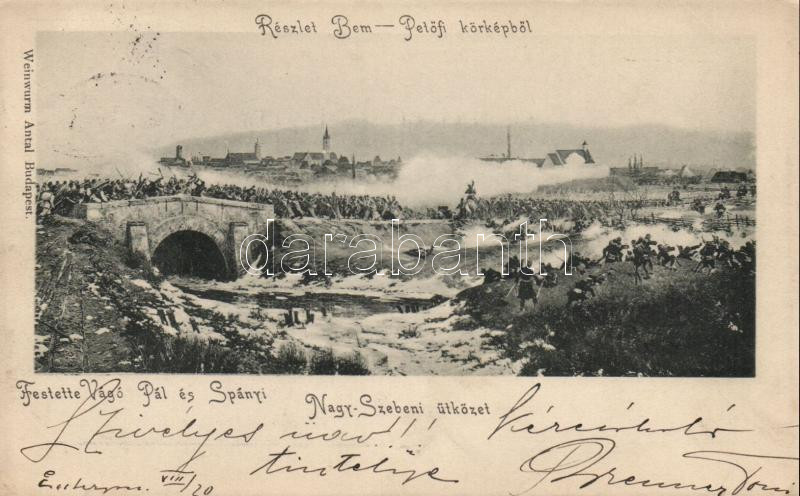 Részlet Bem — Petőfi körképből
Weinwurm Antal Budapest.
darabanth
Festette Vágó Pál és Spányi
Nagy-Szebeni ütközet
Szivélyes üdv!!
Esztergom VIII/20